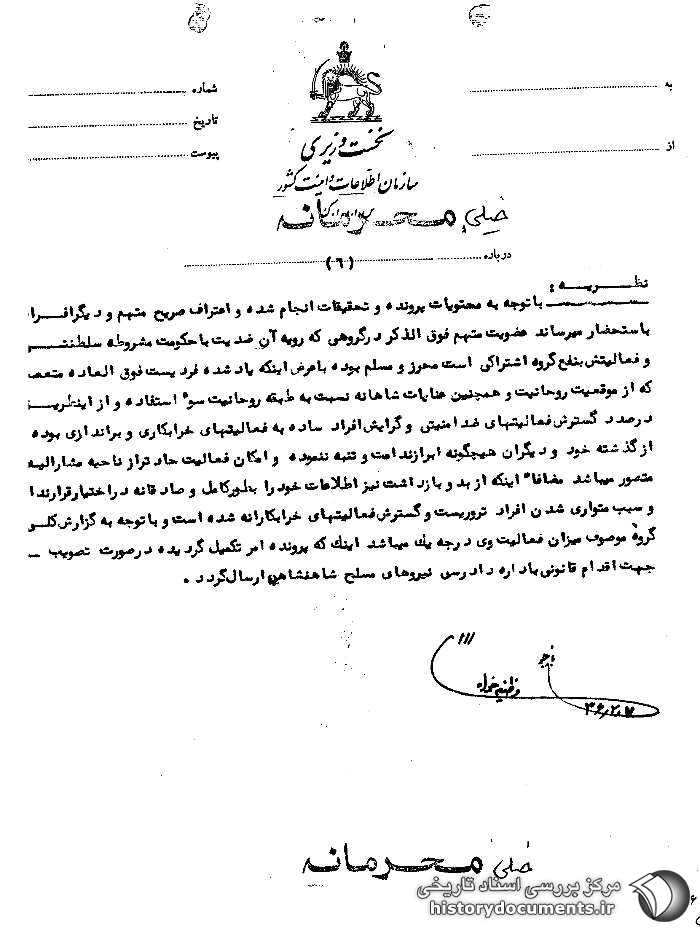 به
شماره
تاریخ
از
پیوست
نخست وزیری
سازمان اطلاعات و امنیت کشور
س.ا.و.ا.ک
خیلی محرمانه
درباره
(٦)
نظریه :
با توجه به محتویات پرونده و تحقیقات انجام شده و اعتراف صریح متهم و دیگر افراد
باستحضار میرساند عضویت متهم فوق الذکر درگروهی که رویه آن ضدیت با حکومت مشروطه سلطنتی
و فعالیتش بنفع گروه اشتراکی است محرز و مسلم بوده باعرض اینکه یاد شده فردیست فوق العاده متعصب
که از موقعیت روحانیت و همچنین عنایات شاهانه نسبت به طبقه روحانیت سوء استفاده و از اینطریق
درصدد گسترش فعالیتهای ضد امنیتی و گرایش افراد ساده به فعالیتهای خرابکاری و براندازی بوده
ازگذشته خود و دیگران هیچگونه ابراز ندامت و تنبه ننموده و امکان فعالیت حادتر از ناحیه مشارالیه
متصور میباشد مضافاً اینکه از بدو بازداشت نیز اطلاعات خود را بطورکامل و صادقانه در اختیار قرار نداده
و سبب متواری شدن افراد تروریست و گسترش فعالیتهای خرابکارانه شده است و با توجه به گزارش کلی
گروه موصوف میزان فعالیت وی درجه یک میباشد اینک که پرونده امر تکمیل گردیده درصورت تصویب
جهت اقدام قانونی باداره دادرسی نیروهای مسلح شاهنشاهی ارسال گردد .
بازجو
وظیفه خواه
خیلی محرمانه
مرکز بررسی اسناد تاریخی
historydocuments.ir